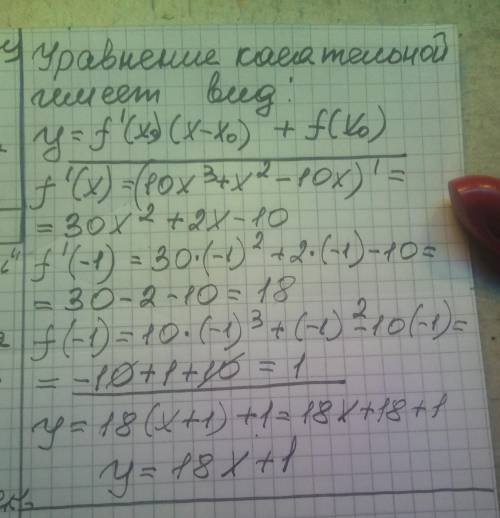 Уравнение касательной
имеет вид:
y = f'(x₀)(x-x₀) + f(x₀)
f'(x) = (10x³+x²-10x)' =
= 30x² + 2x - 10
f'(-1) = 30·(-1)² + 2·(-1) - 10 =
= 30 - 2 - 10 = 18
f(-1) = 10·(-1)³ + (-1)² - 10(-1) =
= -10 + 1 + 10 = 1
y = 18(x+1) + 1 = 18x + 18 + 1
y = 18x + 1